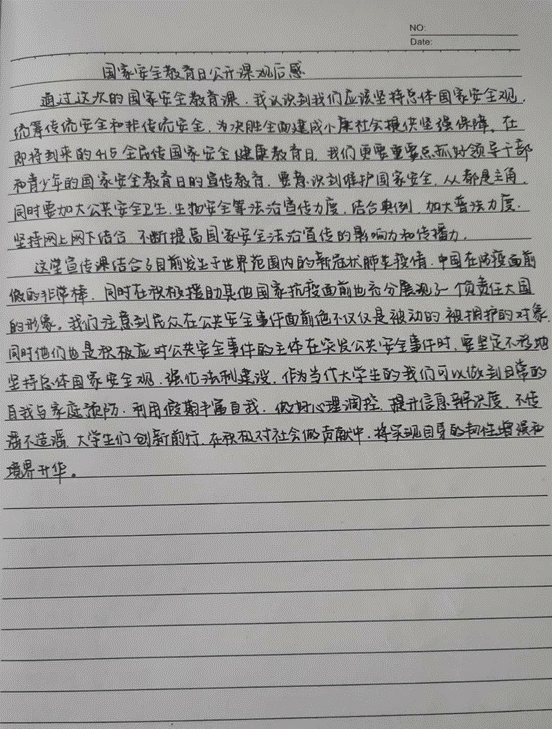 NO:
Date:
国家安全教育日公开课观后感
通过这次的国家安全教育课，我认识到我们应该坚持总体国家安全观，
统筹传统安全和非传统安全，为决胜全面建成小康社会提供坚强保障。在
即将到来的415全民国家安全健康教育日，我们更要重点抓好领导干部
和青少年的国家安全教育日的宣传教育，要意识到维护国家安全，人都是主角，
同时要加大公共安全卫生、生物安全等法治宣传力度，结合典例，加大普法力度，
坚持网上网下结合，不断提高国家安全法治宣传的影响力和传播力。
这堂宣传课结合了目前发生于世界范围内的新冠状肺炎疫情，中国在防疫面前
做的非常棒，同时在积极援助其他国家抗疫面前也充分展现了一个负责任大国
的形象。我们注意到民众在公共安全事件面前他不仅仅是被动的被拥护的对象，
同时他们也是积极应对公共安全事件的主体在突发公共安全事件时，要坚定不移地
坚持总体国家安全观，强化法制建设，作为当代大学生的我们可以做到日常的
自我与家庭预防，利用假期丰富自我，做好心理调控，提升信息辨识度，不传
谣不造谣，大学生们创新前行，在积极对社会做贡献中，将实现自身的韧性增强和
境界升华。